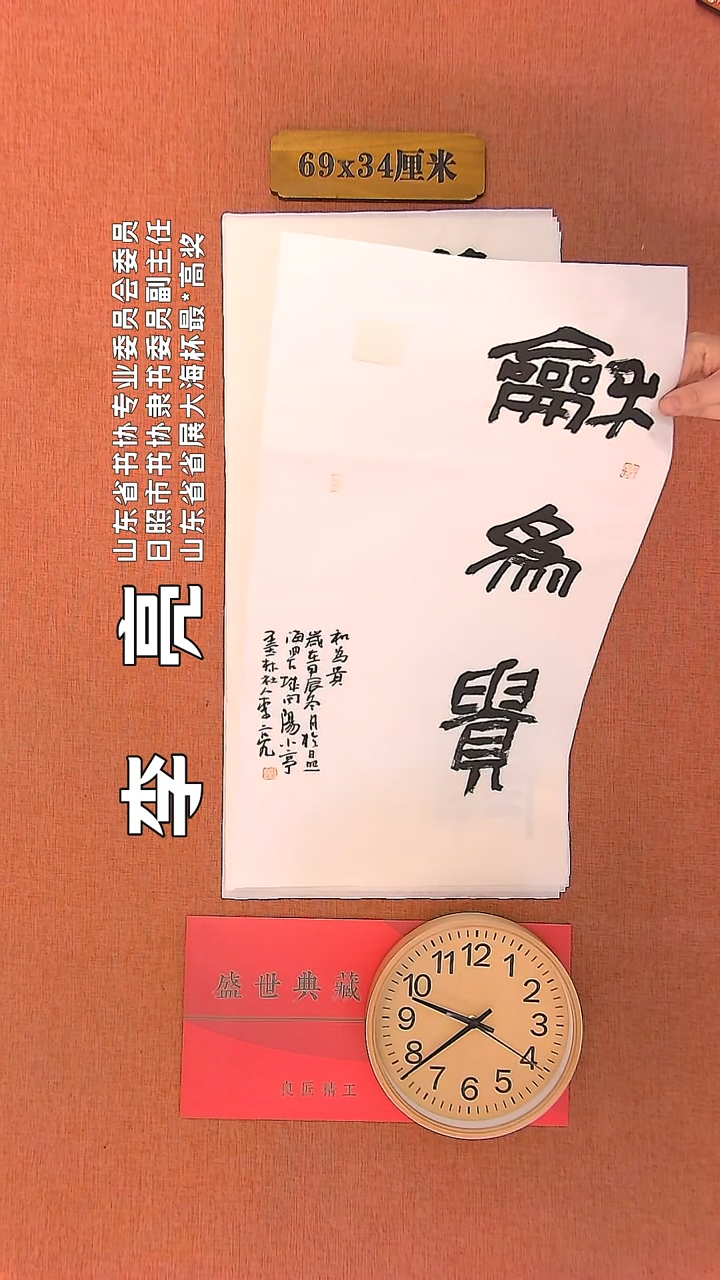 69x34厘米
山东省书协专业委员会委员
日照市书协隶书委员副主任
山东省省展大海杯最*高奖
李 亮
龢
為
貴
和為貴
歲在甲辰冬月於日照
向陽小亭
林社人李亮
盛世典藏
良匠精工
12
1
2
3
4
5
6
7
8
9
10
11